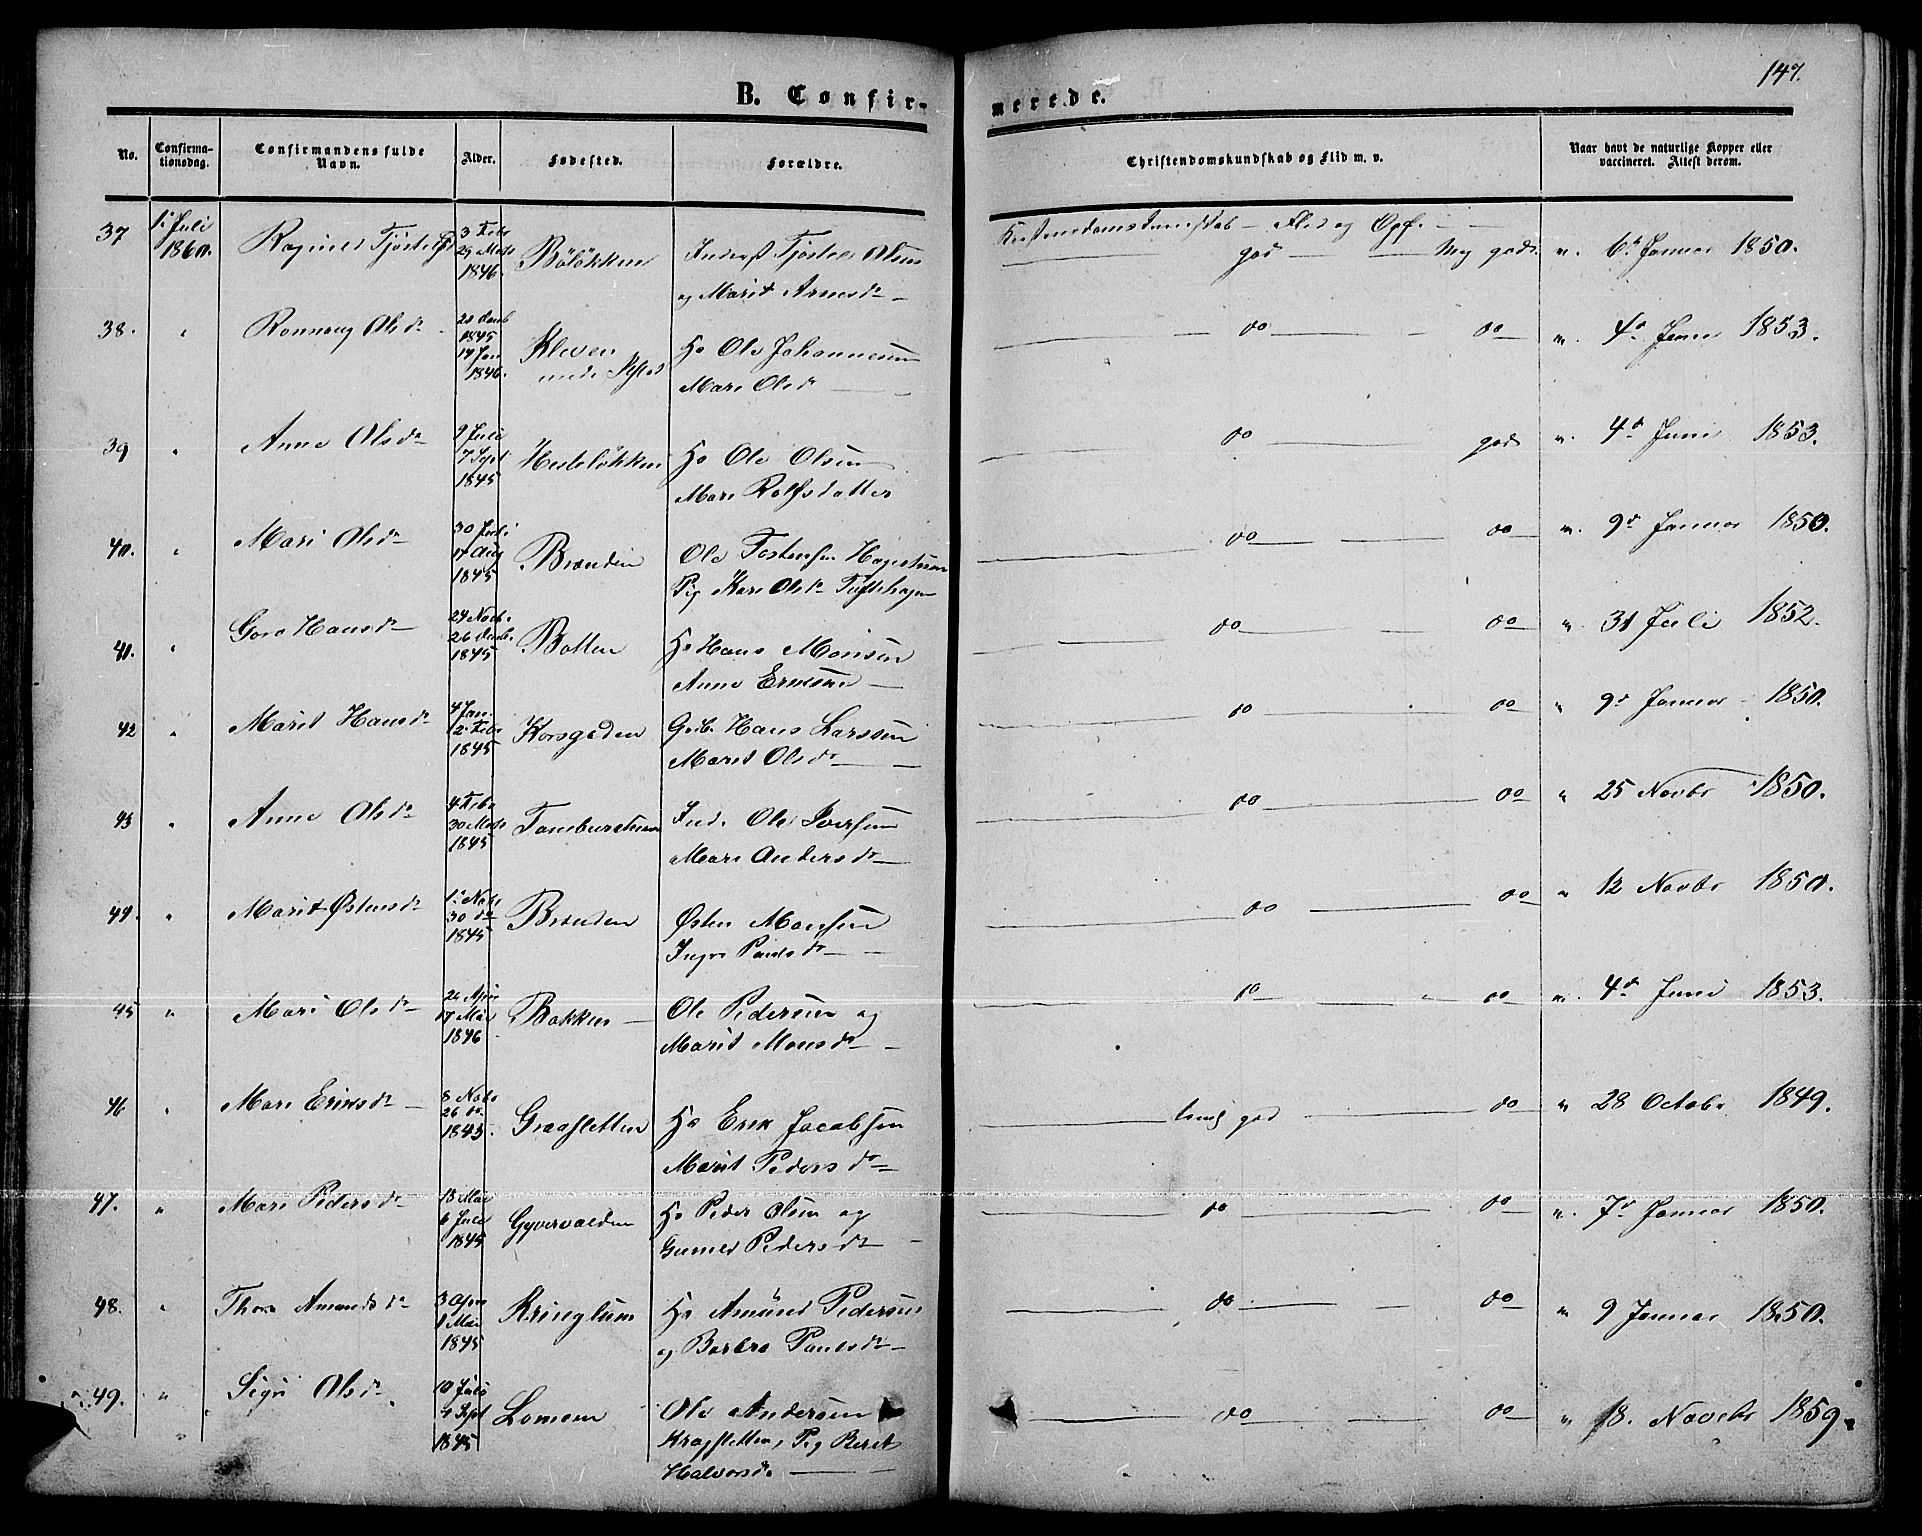 147.
B. Confir-
merede.
No.
Confirma-
tionsdag.
Confirmandens fulde
Navn.
Alder.
Fødested.
Forældre.
Christendomskundskab og Flid m. v.
Naar havt de naturlige Kopper eller
vaccineret. Attest derom.
37 1ste Juli
1860.
3 Febr
29 Mats
1846.
og Marit Arnesdr
Kristendomskundskab - Flid og Opf.
god Meg god. v. 6te Januar 1850.
38. " Olsdr
1845
14 Jan
1846.
Kleven
Ho Ole Johannesen
Mari Olsdr
do do v. 4de Juni 1853.
39 " Anne Olsdr
9 Juli
7 Sept
1845
Hesteløkken
Ho Ole Olsen
Mari Rolfsdatter
do god v. 4de Juni 1853.
40. " Mari Olsdr
30 Juli
17 Aug
1845
Brænden
Ole Tostensen
Pig Kari Olsdr
do do v. 9de Januar 1850.
41. " Goro Hansdr
24 Novbr.
26 Decb.
1845
Botten
Ho Hans Monsen
Anne
do do " 31 Juli 1852.
42 " Marit Hansdr
4 Jan.
12 Febr
1845
Korsgaden
Hans Larssen
Marit Olsdr
do do " 9de Januar 1850.
43 " Anne Olsdr
4 Febr
30 Mats
1845
Ind. Ole Iversen
Mari Andersdr
do do " 25 Novbr 1850.
44. " Marit Østensdr
1. Novbr
30 do
1845
Brænden
Østen Monsen
Ingri Paulsdr
do do " 12 Novbr 1850.
45 " Mari Olsdr
17 Mai
1846
Bakken
Ole Pedersen og
Marit Monsdr
do do v. 4de Juni 1853.
46 " Mari Eriksdr
8 Novbr
26 do
1845.
Graasletten
Ho Erik Jacobsen
Marit Pedersdr
temlig god do " 28 Octobr 1849.
47. " Mari Pedersdr
18 Mai
6 Juli
1845
Ho Peder Olsen og
Pedersdr
do do v. 7de Januar 1850.
48. " Thora Amundsdr
3 April
1 Mai
1845
Kringlum
Ho Amund Pedersen
og Barbro Paulsdr
do do " 9 Januar 1850.
49. " Sigri Olsdr
10 Juli
4 Sept
1845
Lomoen
Ole Andersen
Kragsletten, Pig Beret
Halvorsdr
do do " 18. Novebr 1859.